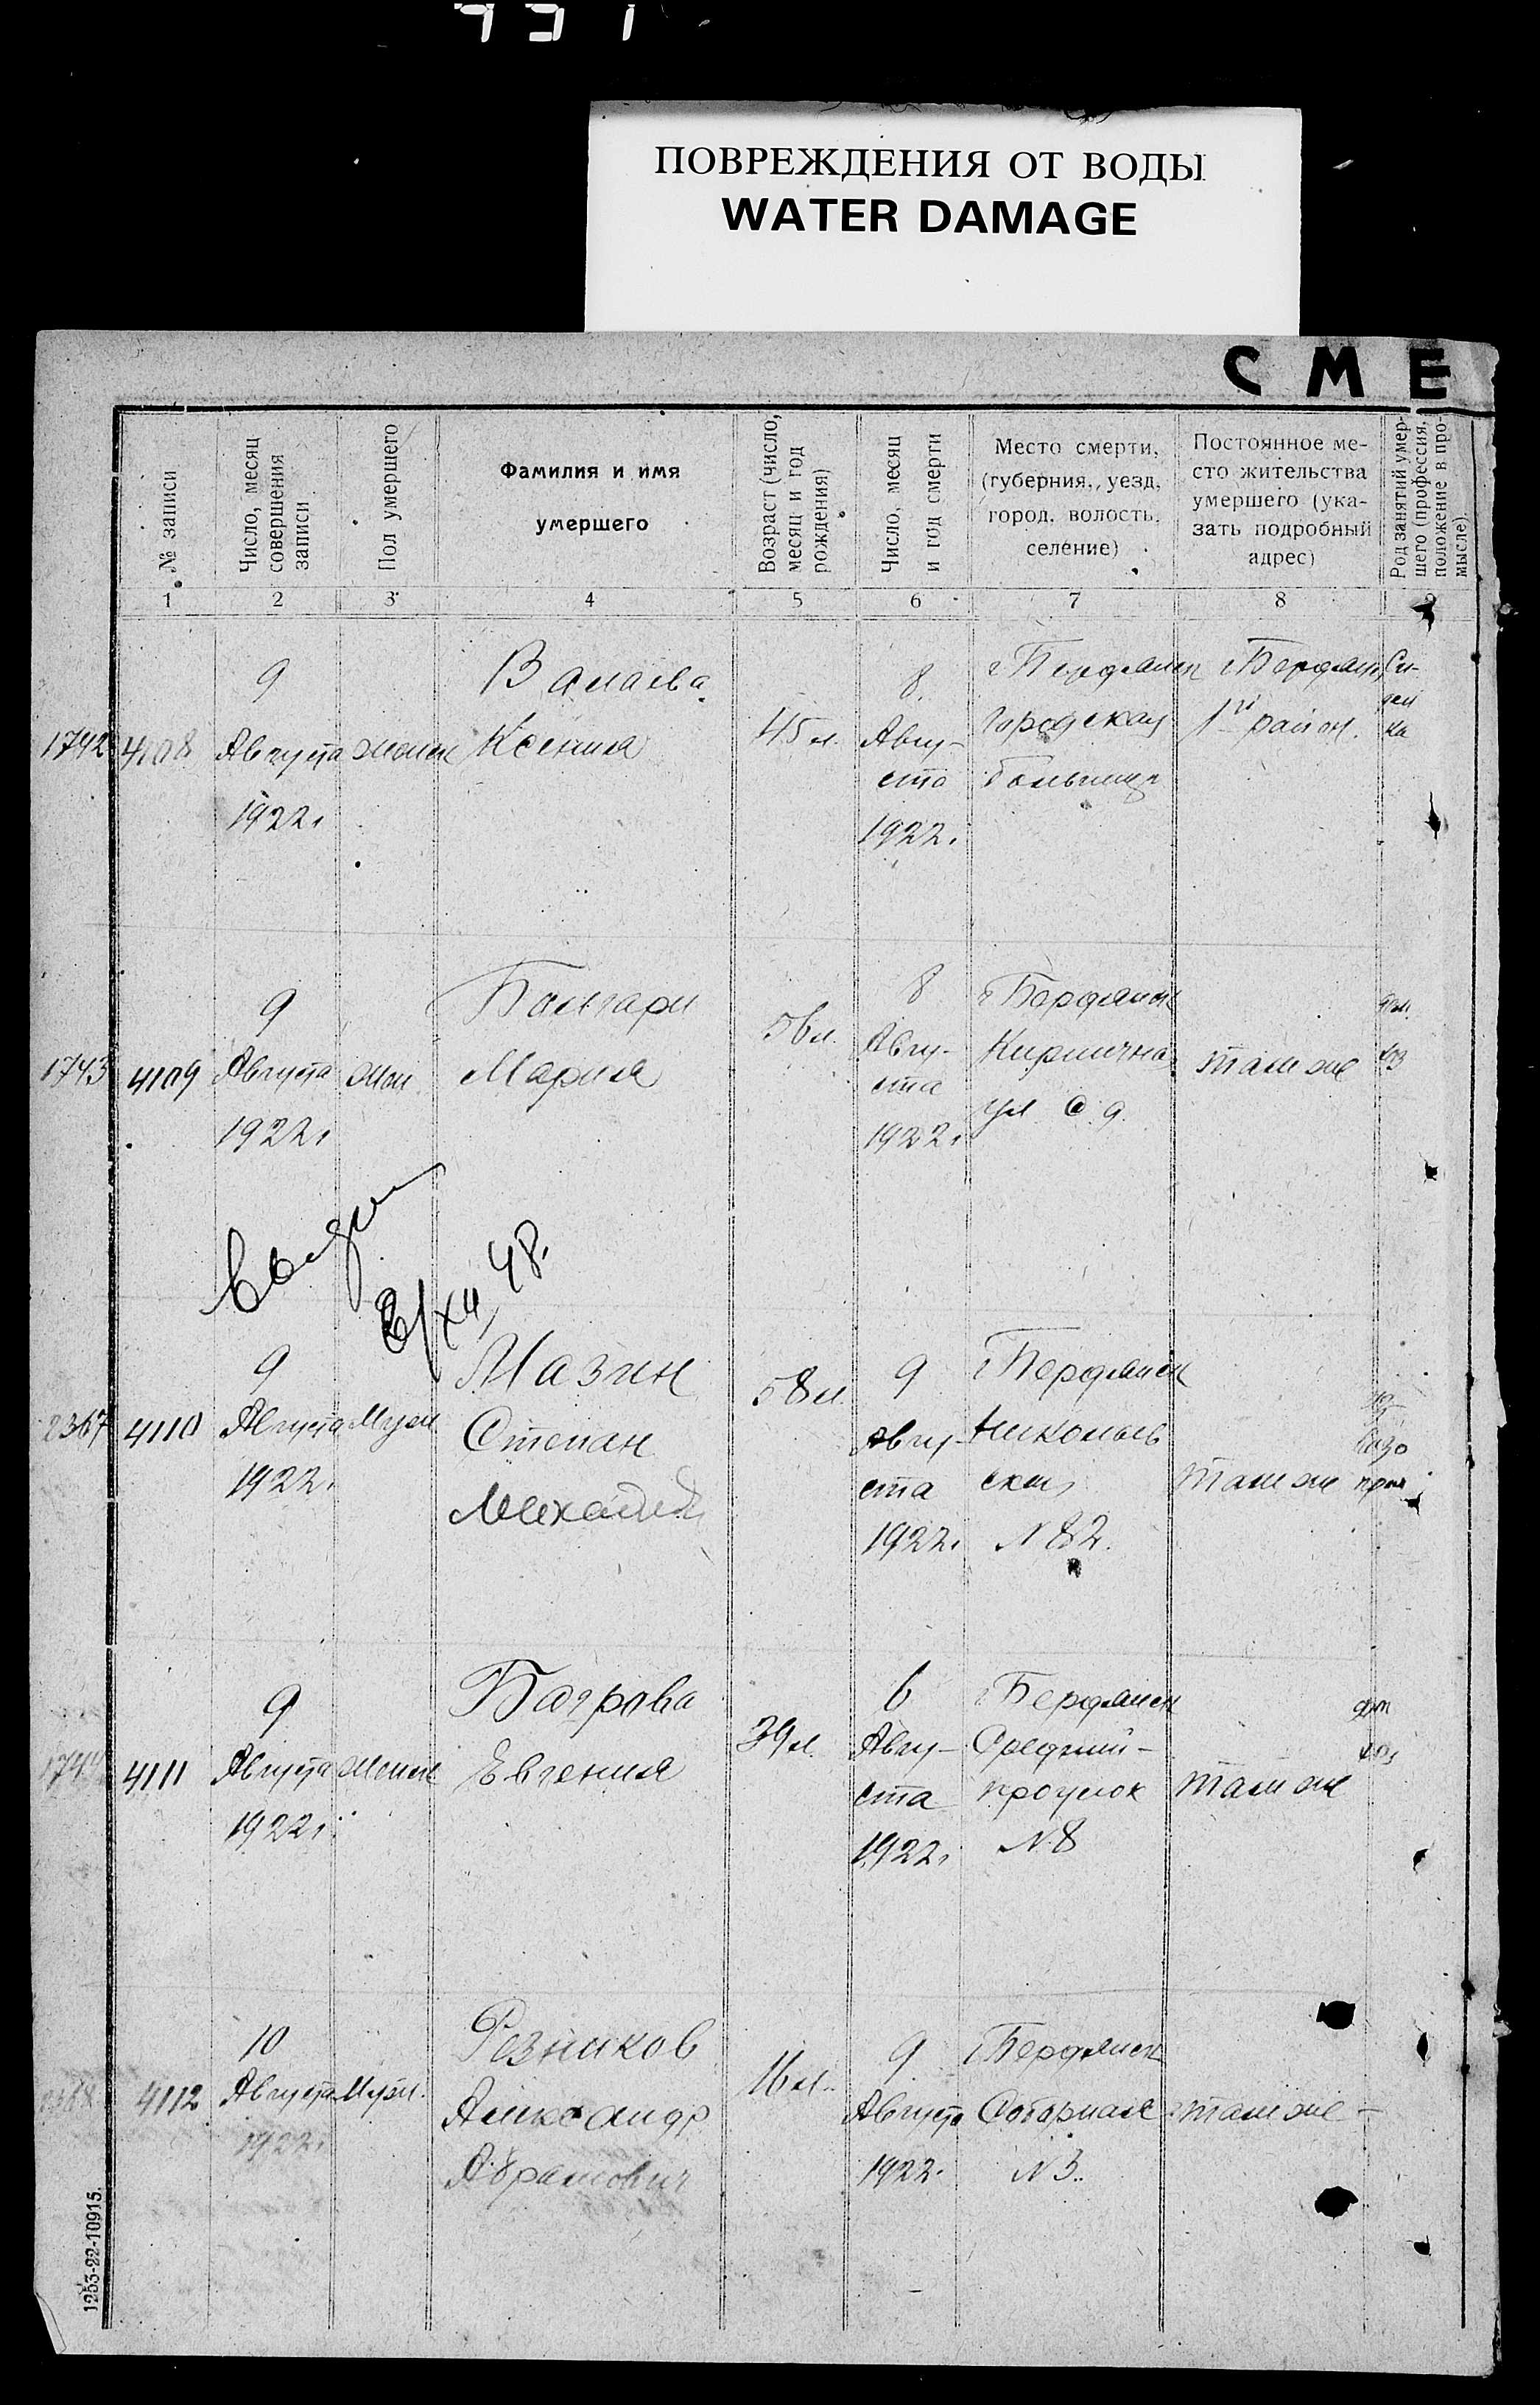 ПОВРЕЖДЕНИЯ ОТ ВОДЫ
WATER DAMAGE
СМЕ
№ записи
Число, месяц совершения записи
Пол умершего
Фамилия и имя
умершего
Возраст (число, месяц и год рождения)
Число, месяц и год смерти
Место смерти,
(губерния, уезд,
город, волость,
селение)
Постоянное ме-
сто жительства
умершего (ука-
зать подробный
адрес)
Род занятий умер-
шего (профессия,
положение в про-
мысле)
1 2 3 4 5 6 7 8
1742 4108
9
Августа
1922г
Женск
Ксения
45 л.
8
Авгу-
ста
1922г
г Бердянск
городская
больница
г Бердянск
1й район.
1743 4109
9
Августа
1922г
Жен
Болгари
Мария
56 л.
8
Авгу-
ста
1922г
г Бердянск
Кирпичная
ул с. д.
там же
48.
2367 4110
9
Августа
1922г
Муж
Мазин
Степан
58 л.
9
Авгу-
ста
1922г
г Бердянск
Николаев
ская
N 82.
там же
4111
9
Августа
1922г
Женск
Багрова
Евгения
39 л.
6
Авгу-
ста
1922г
г Бердянск
Средний-
проулок
N 8
там же
4112
10
Августа
1922г
Муж.
Резников
Александр
Абрамович
16 л.
9
Августа
1922г
г Бердянск
Соборная
N 3.
там же -
1253-22-10915.